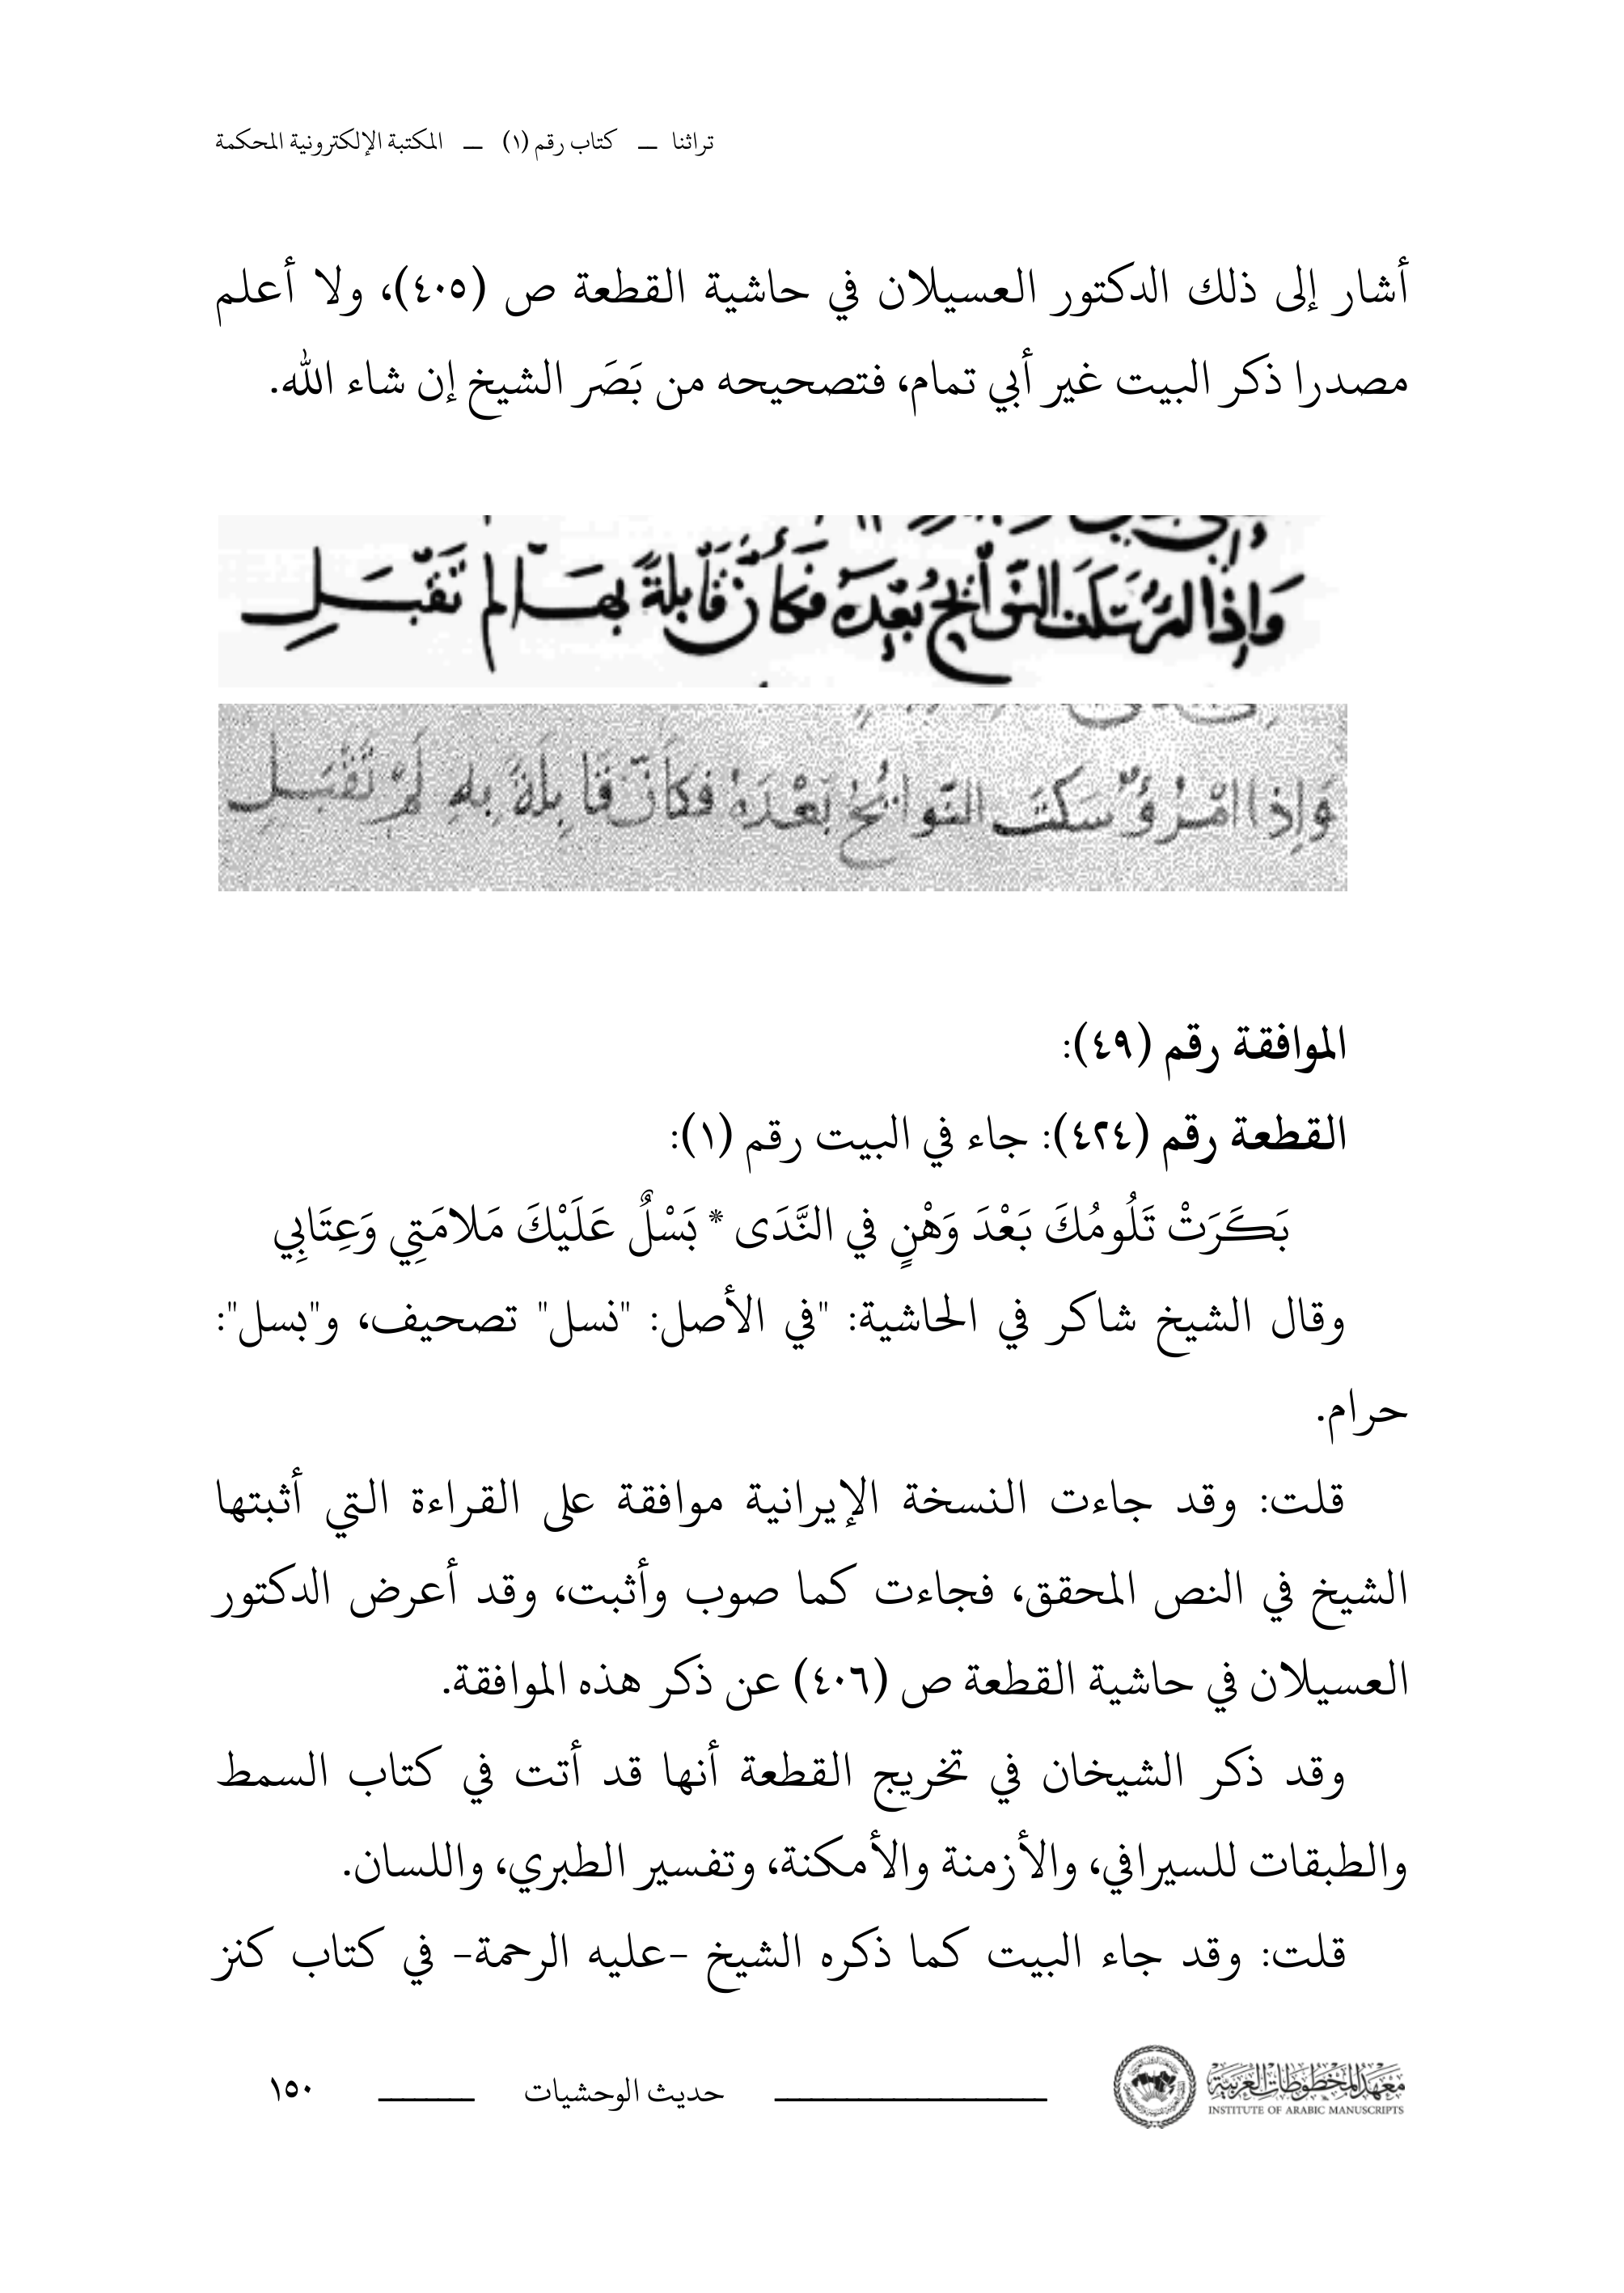 تراثنا — كتاب رقم (١) — المكتبة الإلكترونية المحكمة
أشار إلى ذلك الدكتور العسيلان في حاشية القطعة ص (٤٠٥)، ولا أعلم
مصدرا ذكر البيت غير أبي تمام، فتصحيحه من بَصَر الشيخ إن شاء الله.
وَإِذا بعده فكأن قابلةً بها لم تقبل
وَإِذا امْرُؤٌ سَكَتَ النَّوائِحُ بَعْدَهُ فكأنّ قَابِلَةً بِهِ لَمْ تَقْبَلِ
الموافقة رقم (٤٩):
القطعة رقم (٤٢٤): جاء في البيت رقم (١):
بَكَرَتْ تَلُومُكَ بَعْدَ وَهْنٍ في النَّدَى * بَسْلٌ عَلَيْكَ مَلامَتِي وَعِتَابِي
وقال الشيخ شاكر في الحاشية: "في الأصل: "نسل" تصحيف، و"بسل":
حرام.
قلت: وقد جاءت النسخة الإيرانية موافقة على القراءة التي أثبتها
الشيخ في النص المحقق، فجاءت كما صوب وأثبت، وقد أعرض الدكتور
العسيلان في حاشية القطعة ص (٤٠٦) عن ذكر هذه الموافقة.
وقد ذكر الشيخان في تخريج القطعة أنها قد أتت في كتاب السمط
والطبقات للسيرافي، والأزمنة والأمكنة، وتفسير الطبري، واللسان.
قلت: وقد جاء البيت كما ذكره الشيخ -عليه الرحمة- في كتاب كنز
معهد المخطوطات العربية
INSTITUTE OF ARABIC MANUSCRIPTS
حديث الوحشيات
١٥٠